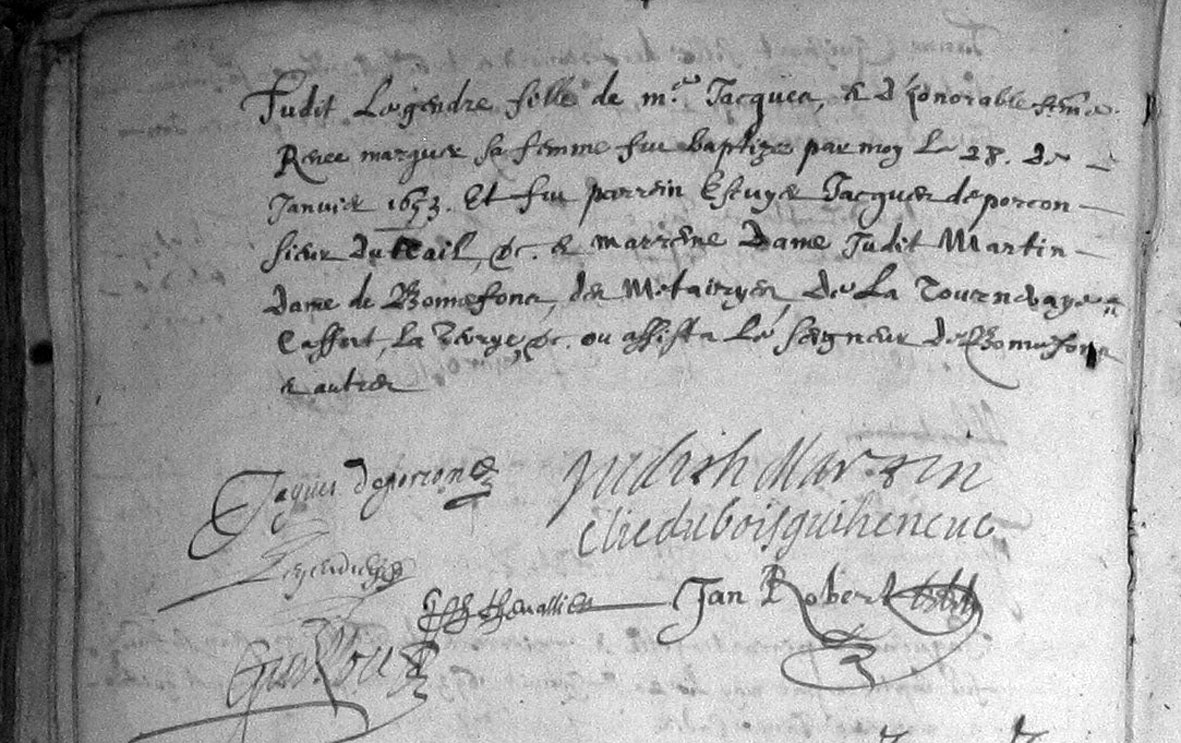 Judit Legendre fille de m.e Jacques, & d'honorable feme
Renee marques sa femme fut baptizee par moy le 28. de
Janvier 1653. Et fut parrein Escuyer Jacques deporcon
sieur du &c. & marrene Dame Judit Martin
dame de Bonnefont, des Metairyes, de La
La Verge, &c. ou assista le seigneur de Bonnefont
& autres
Jaques deporcon Judith Martin
Elie du boisguiheneuc
Legendre
Chevallier Jan Robert